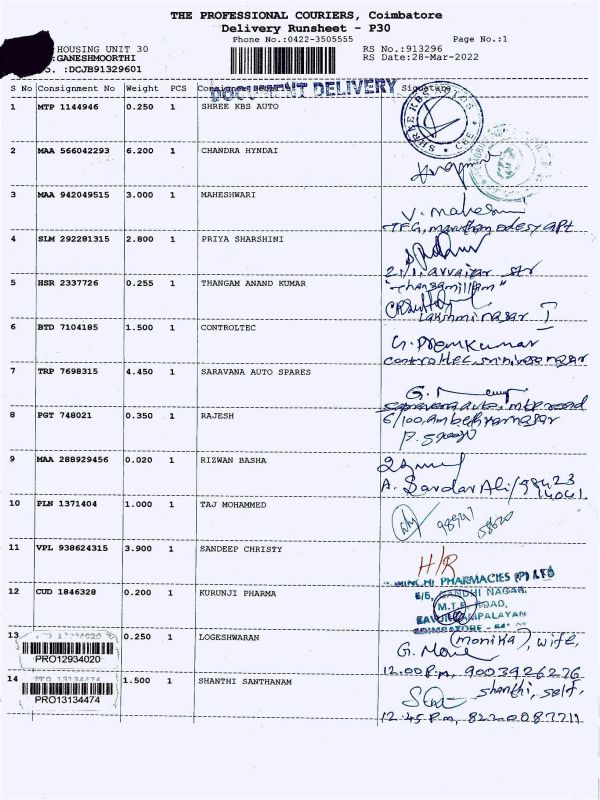 THE PROFESSIONAL COURIERS, Coimbatore
Delivery Runsheet - P30
Phone No.:0422-3505555
Page No.:1
HOUSING UNIT 30
:GANESHMOORTHI
. :DCJB91329601
RS No.:913296
RS Date:28-Mar-2022
DOCUMENT DELIVERY
S No Consignment No Weight PCS Consignee Signature
1 MTP 1144946 0.250 1 SHREE KBS AUTO
SHREE KBS AUTOS CBE
2 MAA 566042293 6.200 1 CHANDRA HYNDAI
3 MAA 942049515 3.000 1 MAHESHWARI
V. mahesw
4 SLM 292281315 2.800 1 PRIYA SHARSHINI
21/1, avvaiyar str
5 HSR 2337726 0.255 1 THANGAM ANAND KUMAR
Lakshmi nagar I
6 BTD 7104185 1.500 1 CONTROLTEC
G. Premkumar
controltec, srinivasa nagar
7 TRP 7698315 4.450 1 SARAVANA AUTO SPARES
Saravana auto, mtp road
8 PGT 748021 0.350 1 RAJESH
6/100, ambethranagar
9 MAA 288929456 0.020 1 RIZWAN BASHA
A. Sardar Ali/98423
14061
10 PLN 1371404 1.000 1 TAJ MOHAMMED
11 VPL 938624315 3.900 1 SANDEEP CHRISTY
H/R
12 CUD 1846328 0.200 1 KURUNJI PHARMA
PHARMACIES (P) LTD
6/5, GANDHI NAGAR
M.T.P. ROAD,
COIMBATORE
13 PRO12934020 0.250 1 LOGESHWARAN
(monika), wife,
12.00 P.m, 9003926226
14 PRO13134474 1.500 1 SHANTHI SANTHANAM
shanthi, self,
12.45 P.m, 8220087711